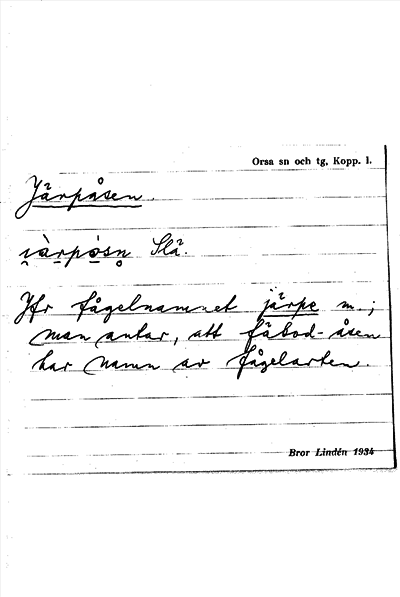 Orsa sn och tg, Kopp. l.
Järpåsen.
Slä.
Jfr fågelnamnet järpe m.;
man antar, att fäbod-åsen
har namn av fågelarten.
Bror Lindén 1934